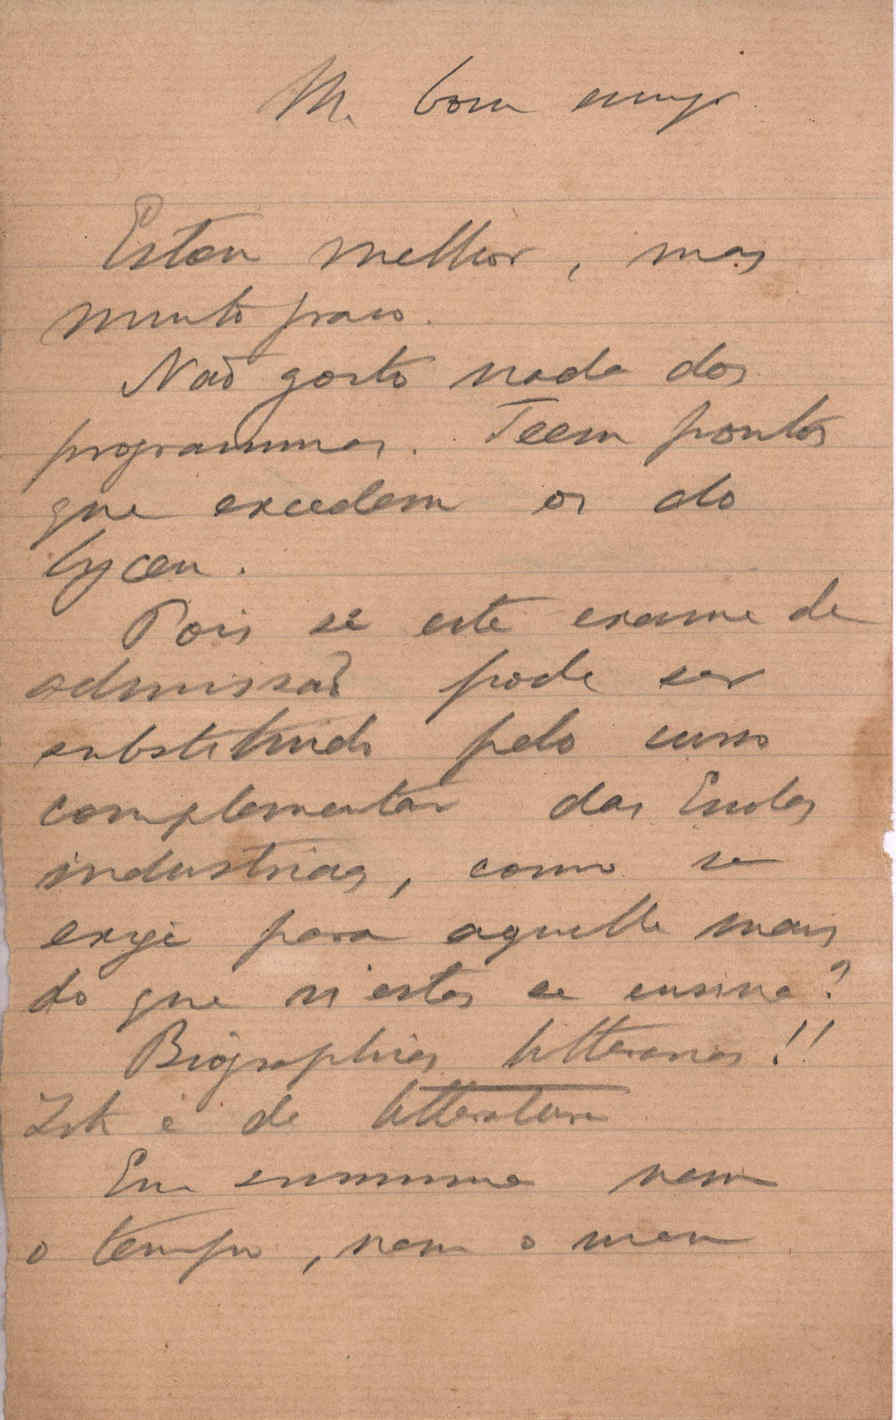 M. bom amigo
Estou melhor, mas
muito fraco.
Não gosto nada dos
programmas. Teem pontos
que excedem os do
lyceu.
Pois se este exame de
admissão pode ser
substituido pelo curso
complementar das Escolas
industriaes, como se
exige para aquelle mais
do que n'estas se ensina?
Biographias litterarias!!
Isto é de litteratura
Em summa nem
o tempo, nem o meu